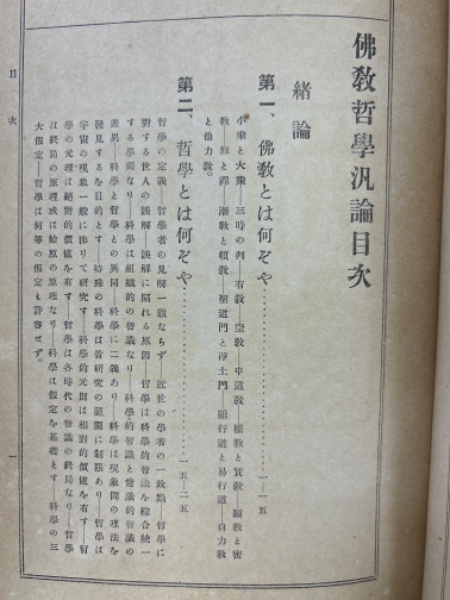 佛敎哲學汎論目次
緒論
第一、佛敎とは何ぞや……………………一—一五
小乘と大乘—三時の判—有敎—空敎—中道敎—權敎と實敎—顯敎と密
敎—敎と禪—漸敎と頓敎—聖道門と淨土門—難行道と易行道—自力敎
と他力敎。
第二、哲學とは何ぞや……………………一五—二五
哲學の定義—哲學者の見解一致ならず—近世の學者の一致點—哲學に
對する世人の誤解—誤解に陷れる原因—哲學は科學的智識を綜合統一
する學問なり—科學は組織的の智識なり—科學的智識と常識的智識の
差異—科學と哲學との異同—科學に二義あり—科學は現象間の理法を
發見するを目的とす—特殊の科學は皆硏究の範圍に制限あり—哲學は
宇宙の現象一般に涉りて硏究す—科學的元則は相對的價値を有す—哲
學の元理は絕對的價値を有す—哲學は各時代の智識の終局なり—哲學
は終局の原理或は始原の原理なり—科學は假定を基礎とす—科學の三
大假定—哲學は何等の假定も許容せず。
目次
一